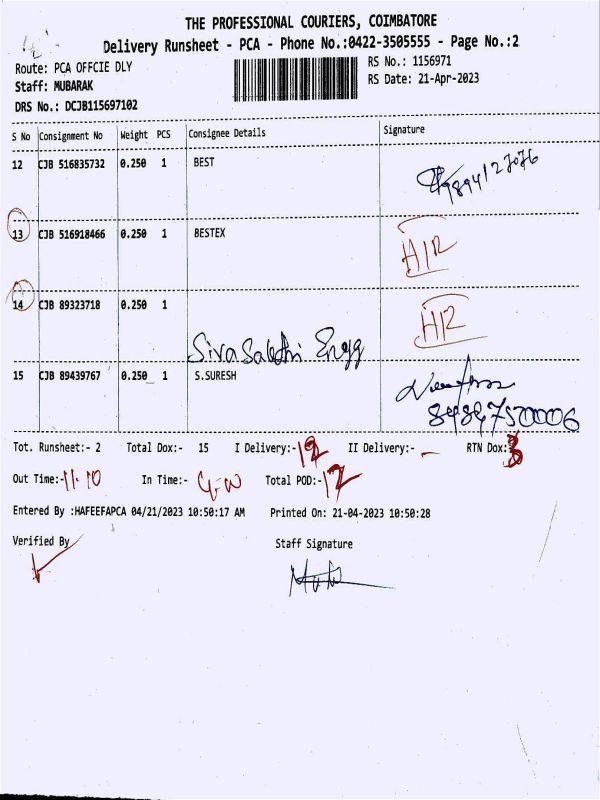 THE PROFESSIONAL COURIERS, COIMBATORE
Delivery Runsheet - PCA - Phone No.:0422-3505555 - Page No.:2
Route: PCA OFFCIE DLY
RS No.: 1156971
Staff: MUBARAK
RS Date: 21-Apr-2023
DRS No.: DCJB115697102
S No Consignment No Weight PCS Consignee Details Signature
12 CJB 516835732 0.250 1 BEST 9894127076
13 CJB 516918466 0.250 1 BESTEX H/R
14 CJB 89323718 0.250 1 H/R
Siva Sakthi Engg
15 CJB 89439767 0.250 1 S.SURESH
Tot. Runsheet:- 2 Total Dox:- 15 I Delivery:- 12 II Delivery:- - RTN Dox:- 3
Out Time:- 11.10 In Time:- 4-00 Total POD:- 12
Entered By :HAFEEFAPCA 04/21/2023 10:50:17 AM Printed On: 21-04-2023 10:50:28
Verified By
Staff Signature